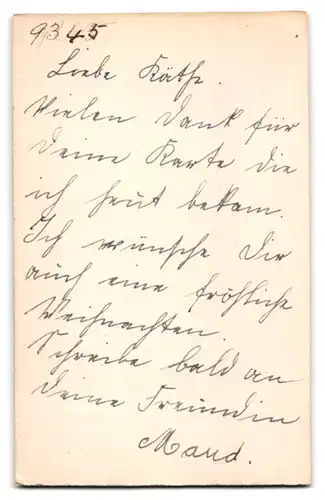 9345
Liebe Käthe.
Vielen Dank für
Deine Karte die
ich heut bekam.
Ich wünsche Dir
auch eine fröhliche
Weihnachten.
Schreibe bald an
deine Freundin
Maud.